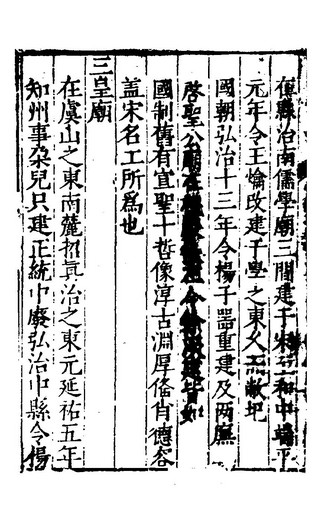 在縣治南儒學廟三間建于宋至和中端平
元年令王爚改建于學之東久而敝圮
國朝弘治十三年令楊子器重建及兩廡
啓聖公
國制舊有宣聖十哲像淳古淵厚俻肖德容
蓋宋名工所爲也
三皇廟
在虞山之東南麓招真治之東元延祐五年
知州事朶兒只建正統中廢弘治中縣令楊